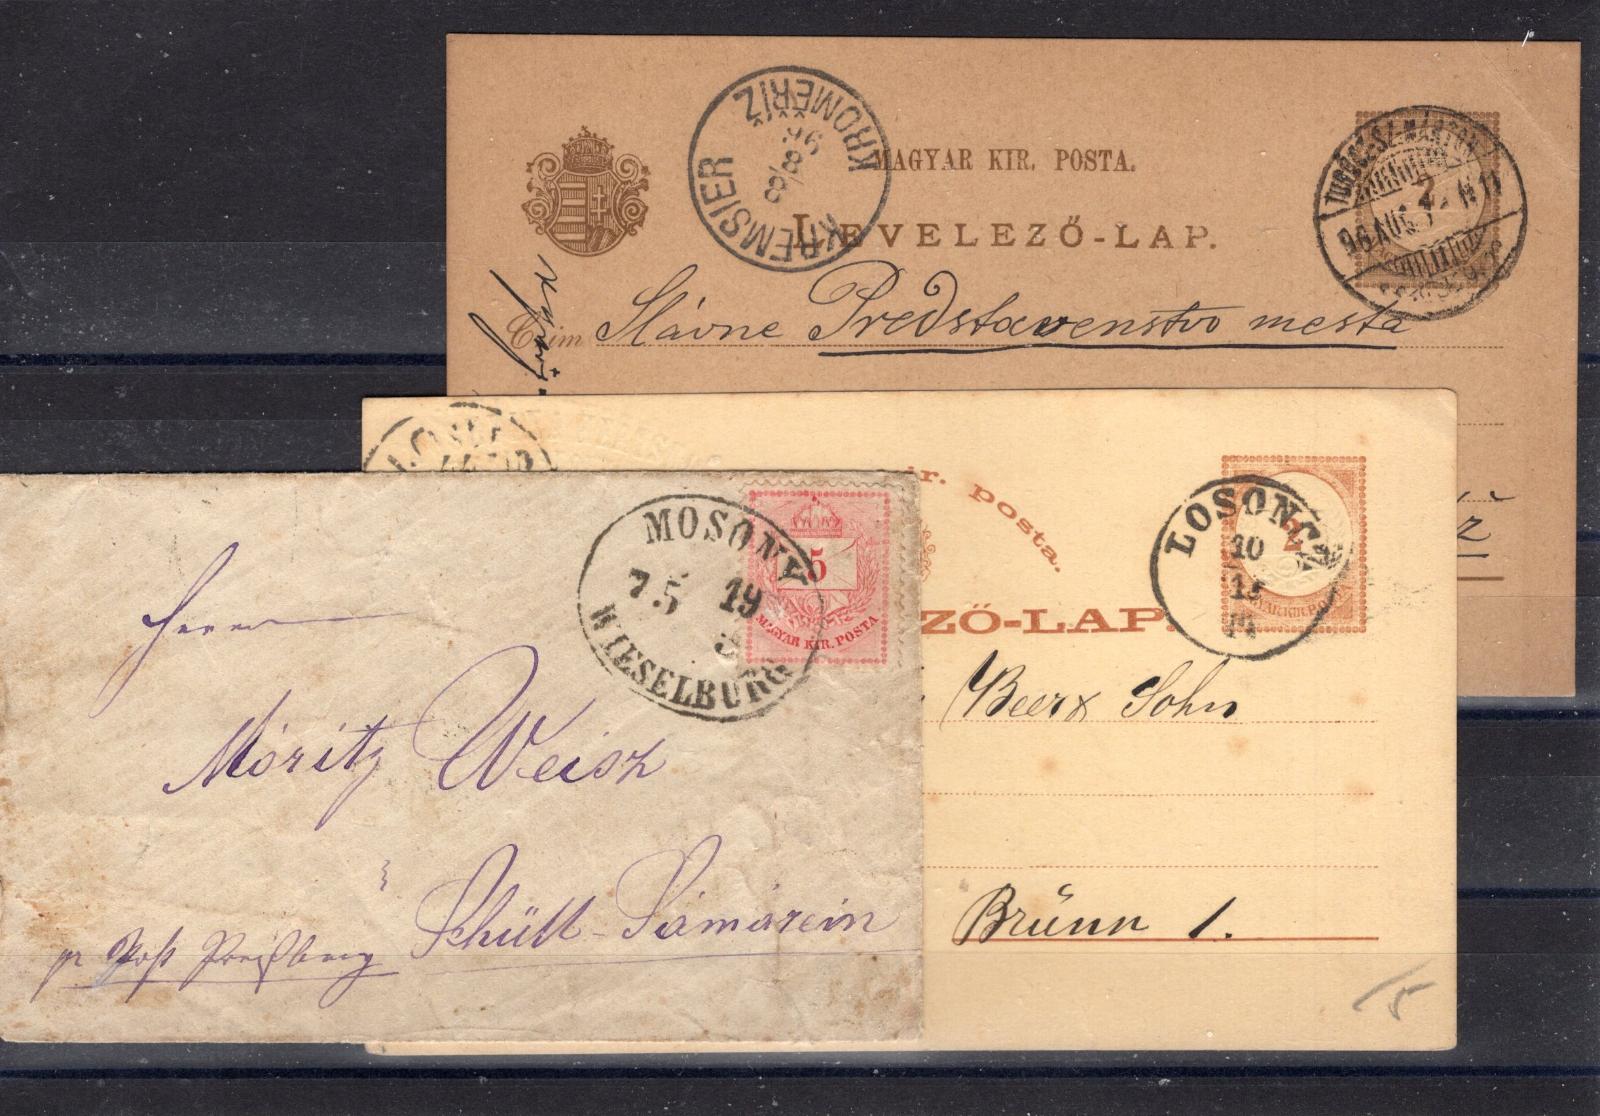 KREMSIER
8/8
96
KROMĚŘÍŽ
MAGYAR KIR. POSTA.
LEVELEZŐ-LAP.
TURÓCZ-SZ-MÁRTON
96 AUG
2
Czim Slávne Predstavenstvo mesta
ir. posta.
ZŐ-LAP.
LOSONCZ
10
15
2
Beer & Sohn
Brünn 1.
MOSONY
75 19
3
WIESELBURG
5
MAGYAR KIR. POSTA
Herrn
Móritz Weisz
Schütt-Sámarein
pr Post Preßburg